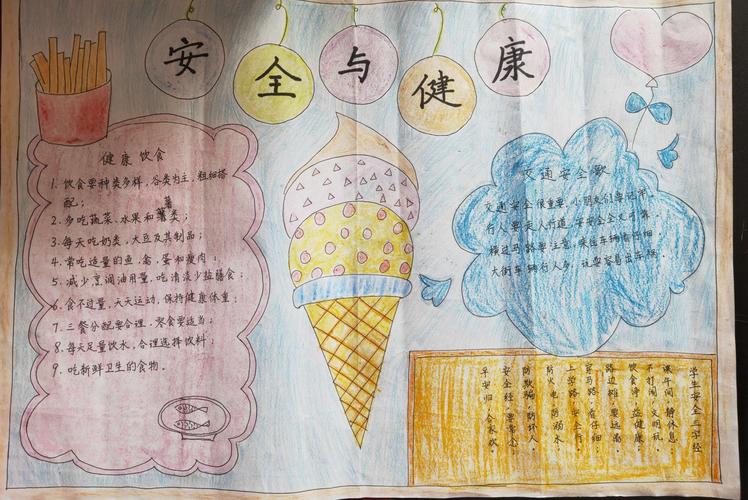 安全与健康
健康 饮食
1. 饮食要种类多样，谷类为主，粗细搭
配；
2. 多吃蔬菜、水果和薯类；
3. 每天吃奶类、大豆及其制品；
4. 常吃适量的鱼、禽、蛋和瘦肉；
5. 减少烹调油用量，吃清淡少盐膳食；
6. 食不过量，天天运动，保持健康体重；
7. 三餐分配要合理，零食要适当；
8. 每天足量饮水，合理选择饮料；
9. 吃新鲜卫生的食物。
交通安全歌
交通安全很重要，小朋友们要记牢
行人要走人行道，安安全全又可靠
横过马路要注意，来往车辆看仔细
大街车辆行人多，玩耍容易出车祸。
学生安全三字经
课午间，静休息，
不打闹，文明玩，
饮食净，益健康，
路边摊，要远离，
穿马路，看仔细，
上学路，安全行，
防火电，防溺水，
防欺骗，防坏人，
安全经，要常念，
早安归，合家欢。